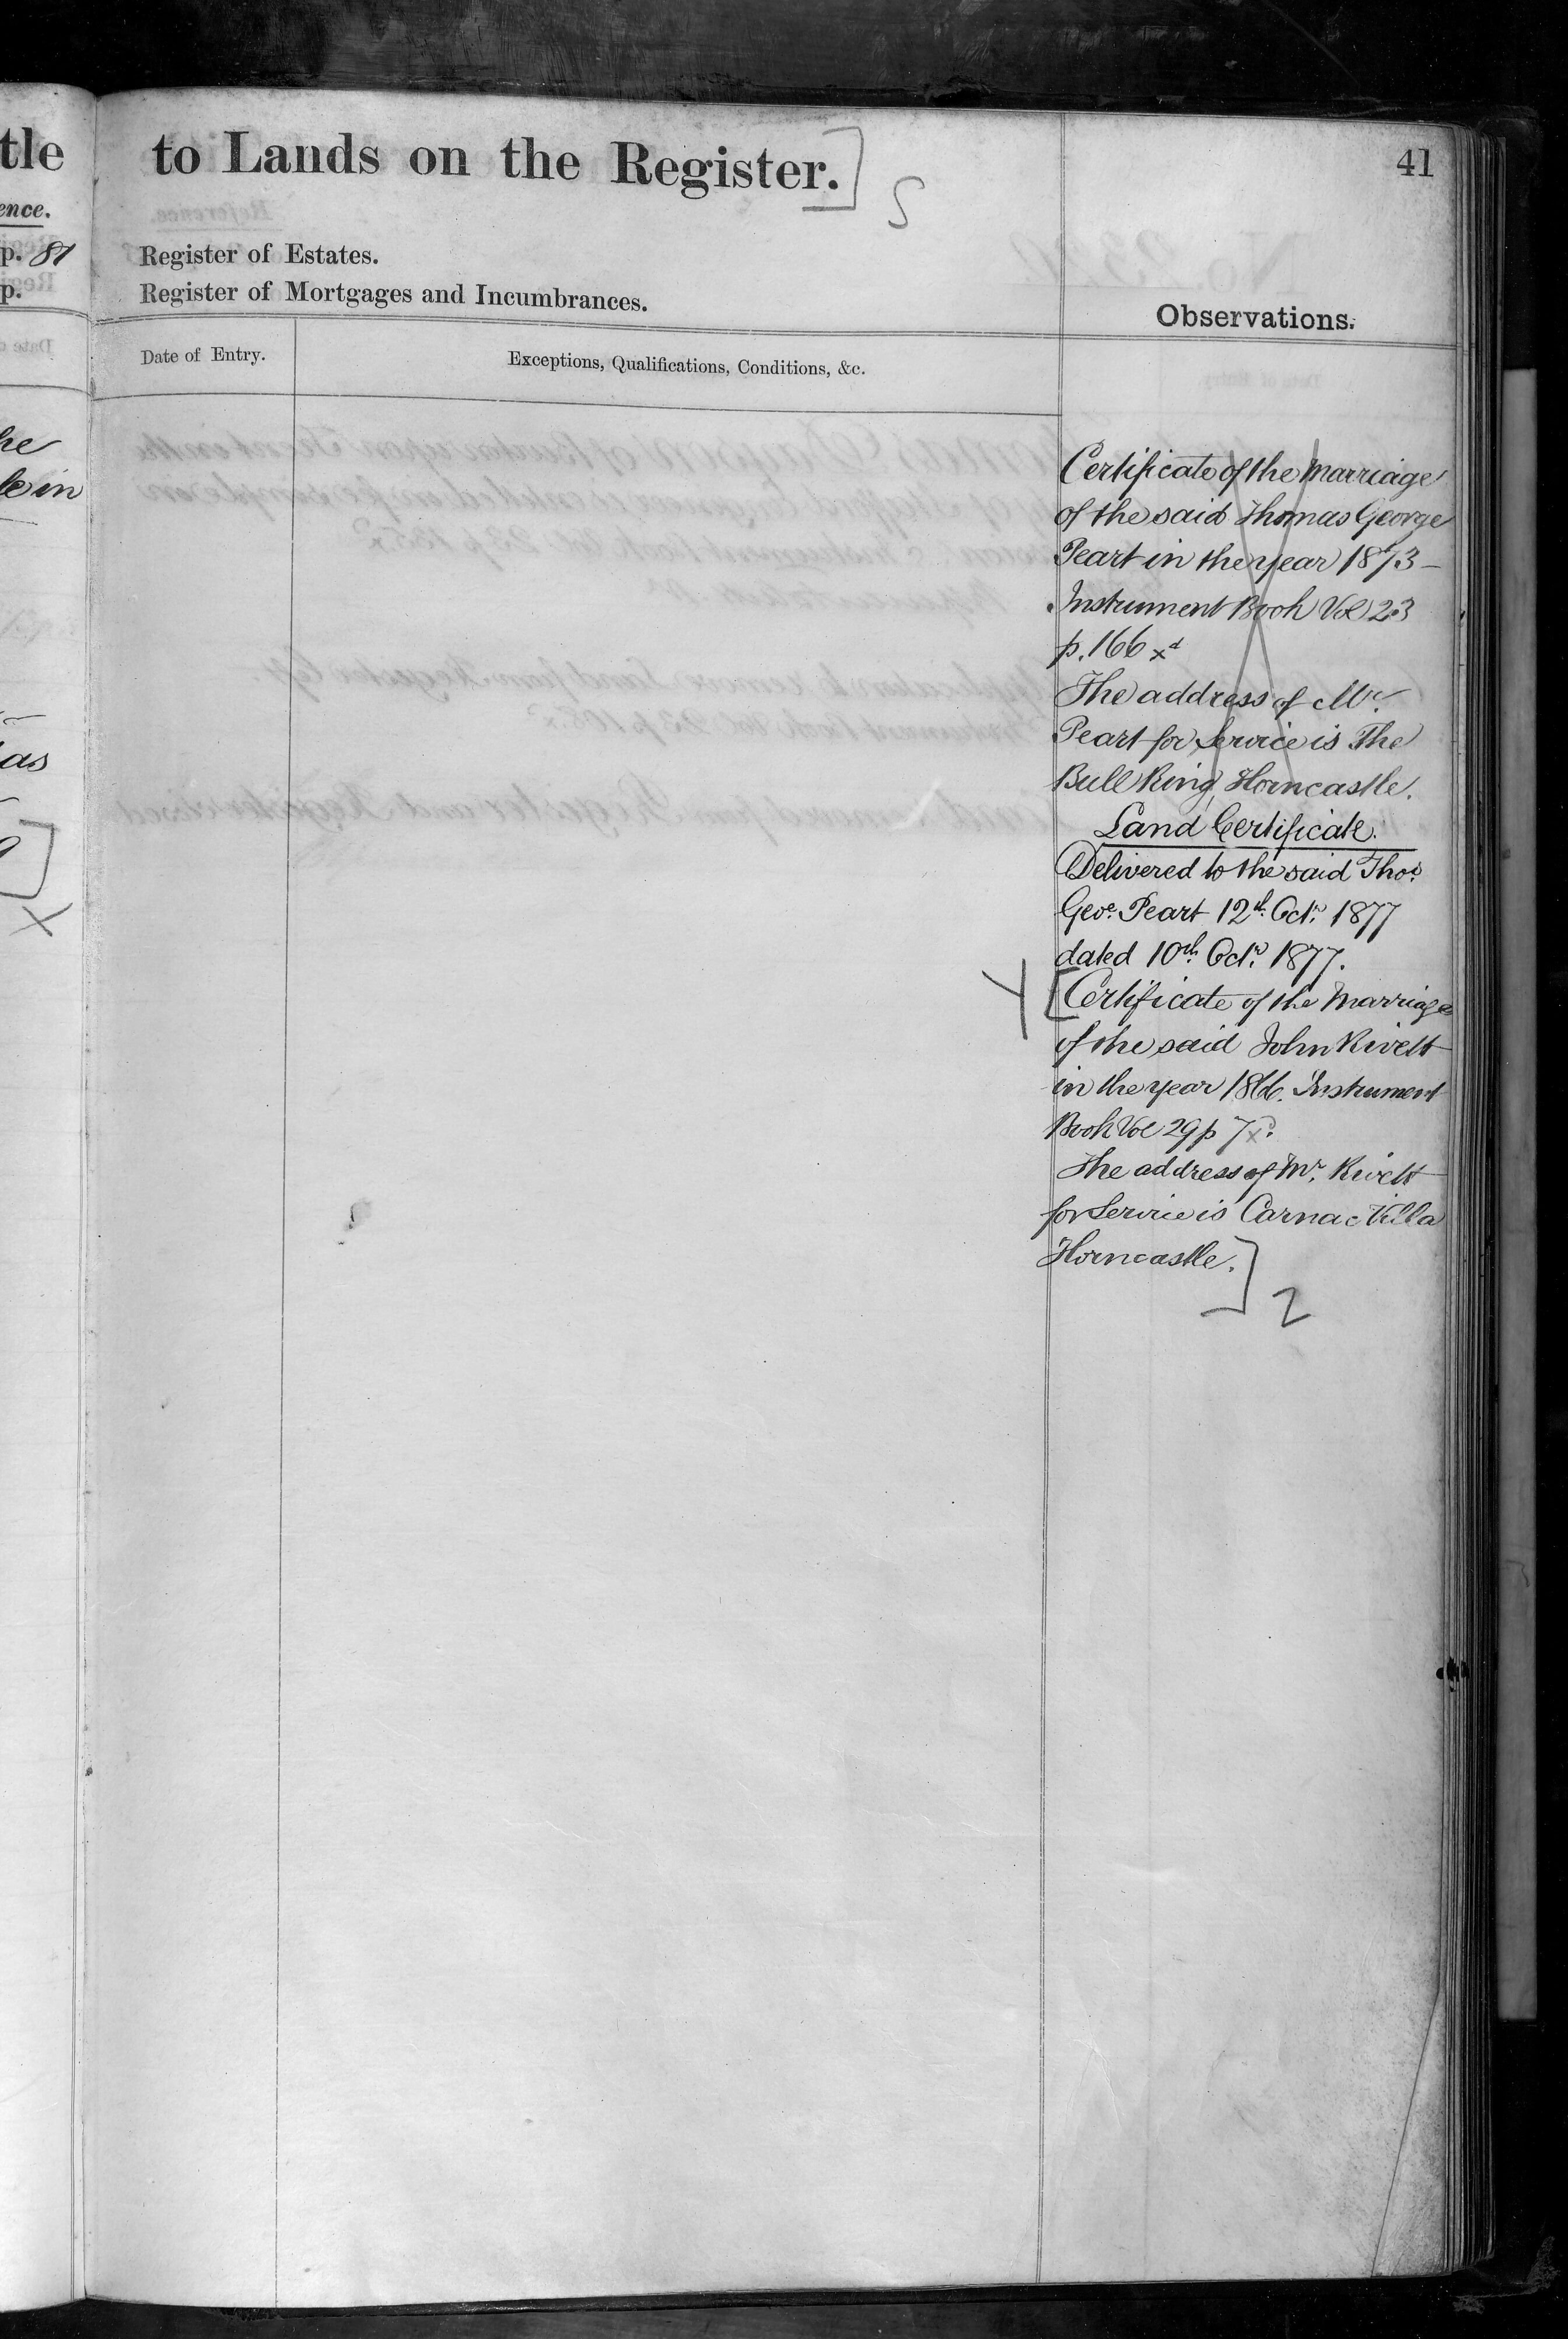 tle
ence.
p. 81
p.
he
le in
as
X
to Lands on the Register.] S
41
Register of Estates.
Register of Mortgages and Incumbrances.
Observations.
Date of Entry.
Exceptions, Qualifications, Conditions, &c.
Certificate of the Marriage
of the said Thomas George
Peart in the year 1873 –
Instrument Book Vol 23
p. 166 x d
The address of Mr.
Peart for Service is The
Bull Ring, Horncastle.
Land Certificate.
Delivered to the said Thos.
Geo. Peart 12th Octr. 1877
dated 10th Octr. 1877.
Y [Certificate of the Marriage
of the said John Rivett
in the year 1866. Instrument
Book Vol 29 p 7 x d.
The address of Mr. Rivett
for Service is Carnac Villa
Horncastle.] Z